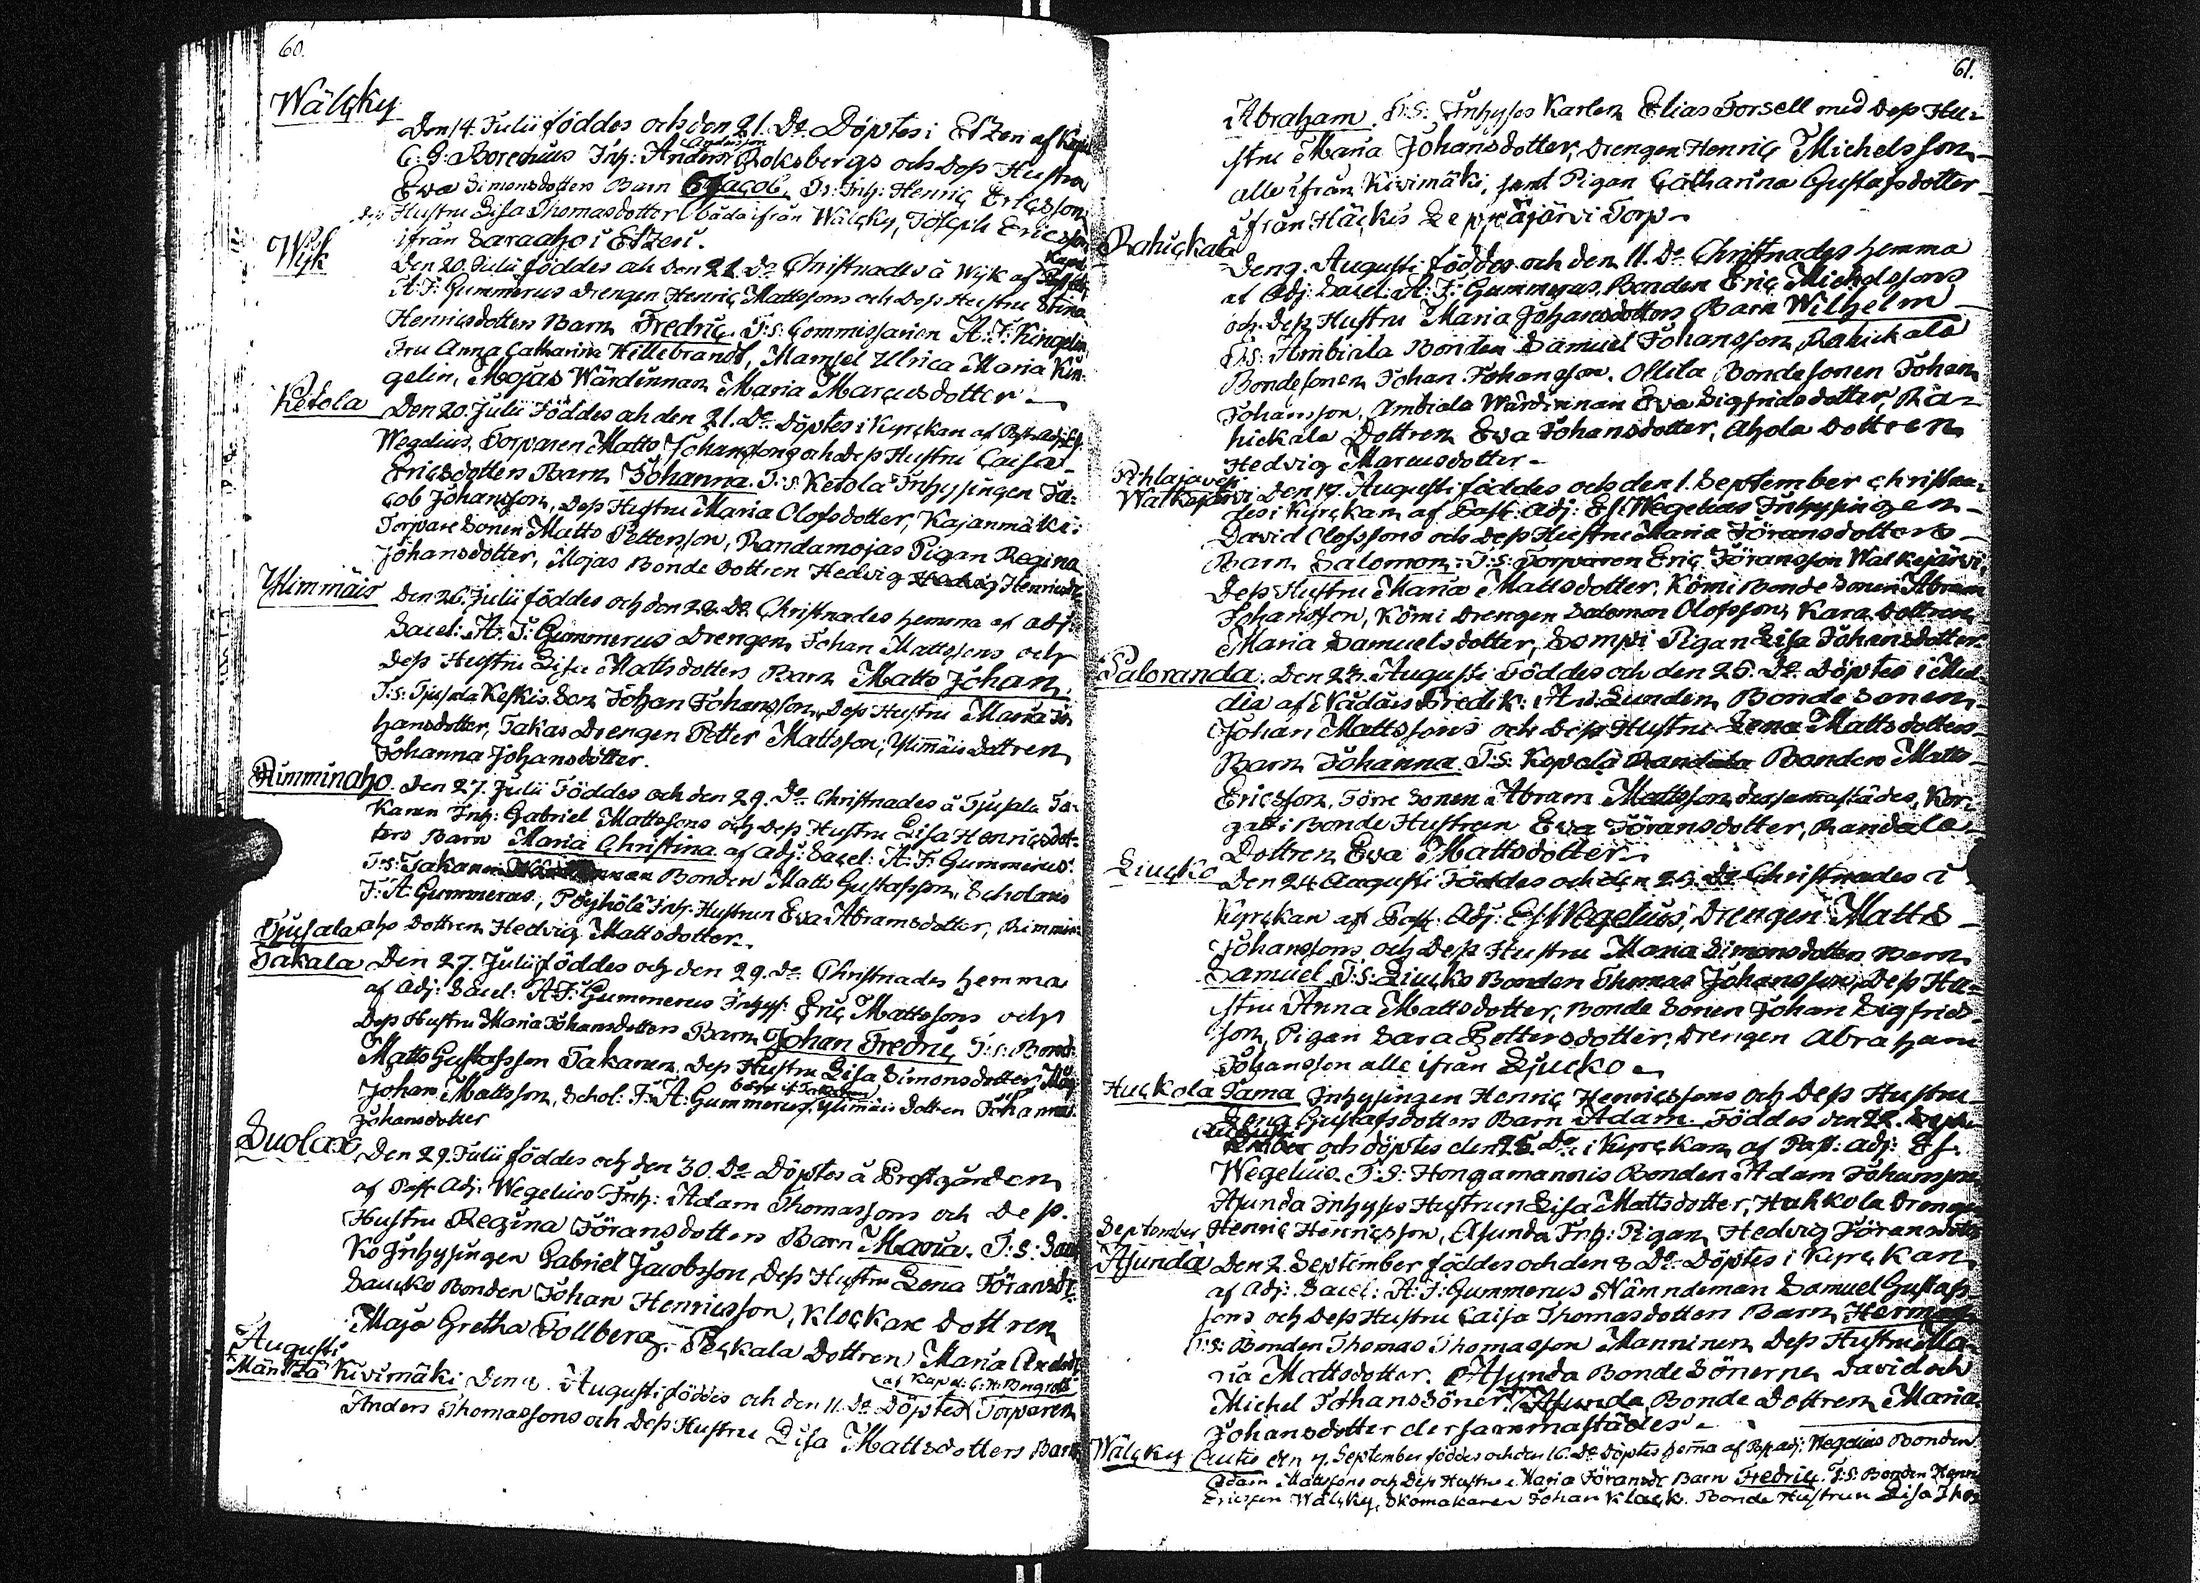 60.
Wälcky
Den 14. Julii föddes och den 21. Do Döptes i Etzeri af Kapel
C: G: Borenius Inh: Anders Andersson Roksbergs och Dess Hustru
Eva Simonsdotters Barn Jacob. T: s: Inh: Henric Ericsson,
Dess Hustru Lisa Thomasdotter både ifrån Wälcky, Joseph Ericsson
ifrån Saraaho i Etzeri.
Wijk
Den 20. Julii föddes och den 21. Do Christnades å Wijk af
A: F: Gummerus Drengen Henric Mattssons och Dess Hustru Stina
Henricsdotters Barn Fredric. T: s: Commissarien A: F: Kingelin,
Fru Anna Catharina Hillebrandt, Mamsel Ulrica Maria Kin-
gelin, Mojas Wärdinnan Maria Marcusdotter.
Ketola
Den 20. Julii Föddes och den 21. Do Döptes i Kyrckan af Past: Adj: Ef:
Wegelius, Torparen Matts Johanssons och Dess Hustru Caisa
Ericsdotters Barn Johanna. T: s: Ketola Inhysingen Ja-
cob Johansson, Dess Hustru Maria Olofsdotter, Kajanmäki
Torpare Sonen Matts Pettersson, Randamojas Pigan Regina
Johansdotter, Mojas Bonde Dottren Hedvig Henricsdr
Ylimmäis
Den 26. Julii föddes och den 28. Do Christnades hemma af adj:
Sacel: A: F: Gummerus Drengen Johan Mattssons och
Dess Hustru Lisa Mattsdotters Barn Matts Johan.
T: s: Tjusala Keskis Son Johan Johansson, Dess Hustru Maria Jo-
hansdotter, Takas Drengen Petter Mattsson, Ylimmäis Dottren
Johanna Johansdotter.
Rimminaho
Den 27. Julii Föddes och den 29. Do Christnades å Tjusala Ta-
karen Inh: Gabriel Mattssons och Dess Hustru Lisa Henricsdot-
ters Barn Maria Christina af adj: Sacel: A: F: Gummerus.
T: s: Takaren Bonden Matts Gustafsson, Scholaris
F: A. Gummerus, Pöyhölä Inh: Hustrun Eva Abramsdotter, Rimmin-
aho Dottren Hedvig Mattsdotter.
Tjusala
Takala
Den 27. Julii föddes och den 29. Do Christnades hemma
af Adj: Sacel: A: F: Gummerus Inhys: Eric Mattssons och
Dess Hustru Maria Johansdotters Barn Johan Fredric T: s: Bond:
Matts Gustafsson Takaren, Dess Hustru Lisa Simonsdotter,
Johan Mattsson, Schol: F: A: Gummerus, Ylimäis Dottren Johanna
Johansdotter
Suolax
Den 29. Julii föddes och den 30. Do Döptes å Prestgården
af Past: Adj: Wegelius Inh: Adam Thomassons och Dess
Hustru Regina Göransdotters Barn Maria. T: s: Sauc
ko Inhysingen Gabriel Jacobsson, Dess Hustru Lena Göransdr
Saucko Bonden Johan Henricsson, Klockare Dottren
Maja Gretha Follberg, Peckala Dottren Maria Andersdr
Augusti
Mäntzä Kivimäki Den 8. Augusti föddes och den 11. Do Döptes af Kapel: C: H: Bngrots Torparen
Anders Thomassons och Dess Hustru Lisa Mattsdotters Barn
61.
Abraham. T: S: Inhyses Karlen Elias Forsell med Dess Hu-
stru Maria Johansdotter, Drengen Henric Michelsson
alle ifrån Kivimäki, samt Pigan Catharina Gustafsdotter
ifrån Häckis Leppäjärvi Torp.
Rahickala
Den 9. Augusti föddes och den 11. Do Christnades hemma
af Adj: Sacel: A: F: Gummerus, Bonden Eric Michelssons
och Dess Hustru Maria Johansdotters Barn Wilhelm
T: S: Ambiala Bonden Samuel Johansson, Rahickala
Bondesonen Johan Johansson, Ollila Bondesonen Johan
Johansson, Ambiala Wärdinnan Eva Sigfridsdotter, Ra-
hickala Dottren Eva Johansdotter, Ahola Dottren
Hedvig Marcusdotter.
Pihlajavesi
Walkejärvi
Den 17. Augusti föddes och den 1. September christna-
des i Kyrckan af Past: adj: Ef. Wegelius Inhysingen
David Olofssons och Dess Hustru Maria Göransdotters
Barn Salomon. T: S: Torparen Eric Göransson Walkejärvi,
Dess Hustru Maria Mattsdotter, Kömi Bonde Sonen Abram
Johansson, Kömi Drengen Salomon Olofsson, Kara Dottren
Maria Samuelsdotter, Sompi Pigan Lisa Johansdotter.
Paloranda
Den 23. Augusti Föddes och den 25. Do Döptes i Mul-
dia af Nådårs Predik: And. Lundén Bonde Sonen
Johan Mattssons och Dess Hustru Lena Mattsdotters
Barn Johanna. T: S: Kopola Bonden Matts
Ericsson, Töre Sonen Abram Mattsson dersammastädes, Kor-
gatti Bonde Hustrun Eva Göransdotter, Randala
Dottren Eva Mattsdotter.
Liucko
Den 24 Augusti Föddes och den 25. Do Christnades i
Kyrckan af Past: Adj: Ef: Wegelius, Drengen Matts
Johanssons och Dess Hustru Maria Simonsdotters Barn
Samuel. T: S: Liucko Bonden Thomas Johansson, Dess Hu-
stru Anna Mattsdotter, Bonde Sonen Johan Sigfrids-
son, Pigan Sara Pettersdotter, Drengen Abraham
Johansson alle ifrån Liucko.
Huckola Tama Inhysingen Henric Henricssons och Dess Hustru
Lena Gustafsdotters Barn Adam. Föddes den 22.
Augusti och döptes den 25. Do i Kyrckan af Past: adj: Ef.
Wegelius. T: S: Hongamannis Bonden Adam Johansson
Asunda Inhyses Hustrun Lisa Mattsdotter, Huhkola Drengen
Henric Henricsson, Asunda Inh: Pigan Hedvig Göransdotter
September
Asunda
Den 2. September föddes och den 8 Do Döptes i Kyrckan
af Adj: Sacel: A: F: Gummerus Nämndeman Samuel Gustafs-
sons och Dess Hustru Caisa Thomasdotters Barn Herman
T: S: Bonden Thomas Thomasson Manninen, Dess Hustru Ma-
ria Mattsdotter. Asunda Bonde Sönerne David och
Michel Johanssöner, Asunda Bonde Dottren Maria
Johansdotter dersammastädes.
Wälcky Autio den 7. September föddes och den 16. Do Döptes hema af Past: adj: Wegelius Bonden
Adam Mattssons och Dess Hustru Maria Göransdr Barn Fredric. T: S: Bonden Henric
Ericsson Wälcky, Skomakaren Johan Klack. Bonde Hustrun Lisa Thos